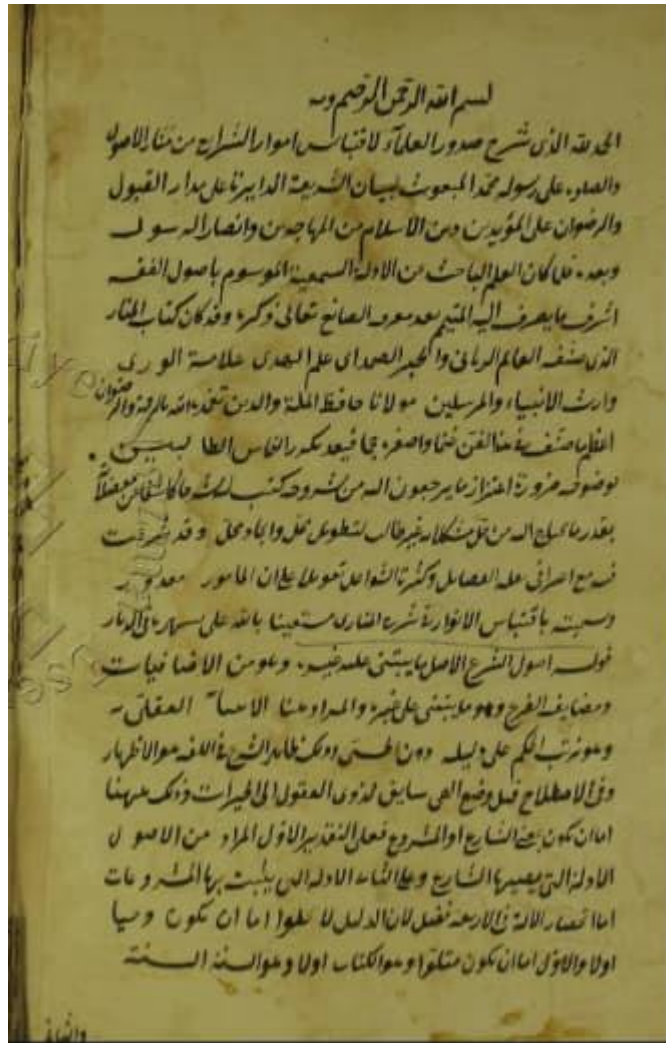 بسم الله الرحمن الرحيم وبه
الحمد لله الذى شرح صدور العلماء لاقتباس انوار الشرايع من منار الاصول
والصلوه على رسوله محمد المبعوث لبيان الشريعة الدايرة على مدار القبول
والرضوان على المؤيدين دين الاسلام من المهاجرين وانصار الرسول
وبعد فلما كان العلم الباحث عن الادلة السمعية الموسوم باصول الفقه
اشرف ما يصرف اليه الهمم بعد معرفة الصانع تعالى ذكره وقد كان كتاب المنار
الذى صنفه العالم الربانى والحبر الصمدانى علم الهدى علامة الورى
وارث الانبياء والمرسلين مولانا حافظ الملة والدين تغمده الله بالرحمة والرضوان
ما صنف فى هذا الفن فيعد تكرر التماس الطالبين
لوضوحه ضرورة اعتزاز ما يرجعون اليه من شروحه كتبت
بقدر ما يحتاج اليه من حل مشكلاته غير طالب لتطويل ممل وايجاز مخل وقد شرعت
فيه مع وكثرة الشواغل تعويلا على ان المامور معذور
وسميته باقتباس الانوار فى شرح المنار مستعينا بالله على
قوله اصول الشرع الاصل ما يبتنى عليه غيره وهو من الاضافيات
ومضايفه الفرع وهو ما يبتنى على غيره والمراد هنا العقلى
وهو ترتب الحكم على دليله دون الحسى وذلك ظاهر الشرع فى اللغه هو الاظهار
وفى الاصطلاح قيل وضع الهى سايق لذوى العقول الى الخيرات وذلك ههنا
اما ان يكون بمعنى الشارع او المشروع فعلى التقدير الاول المراد من الاصول
الادلة التى نصبها الشارع وعلى الثانى الادلة التى يثبت بها المشروعات
اما انحصار الادلة فى الاربعة فقيل لان الدليل لا يخلوا اما ان يكون وحيا
اولا والاول اما ان يكون متلوا وهو الكتاب اولا وهو السنة
والثانى